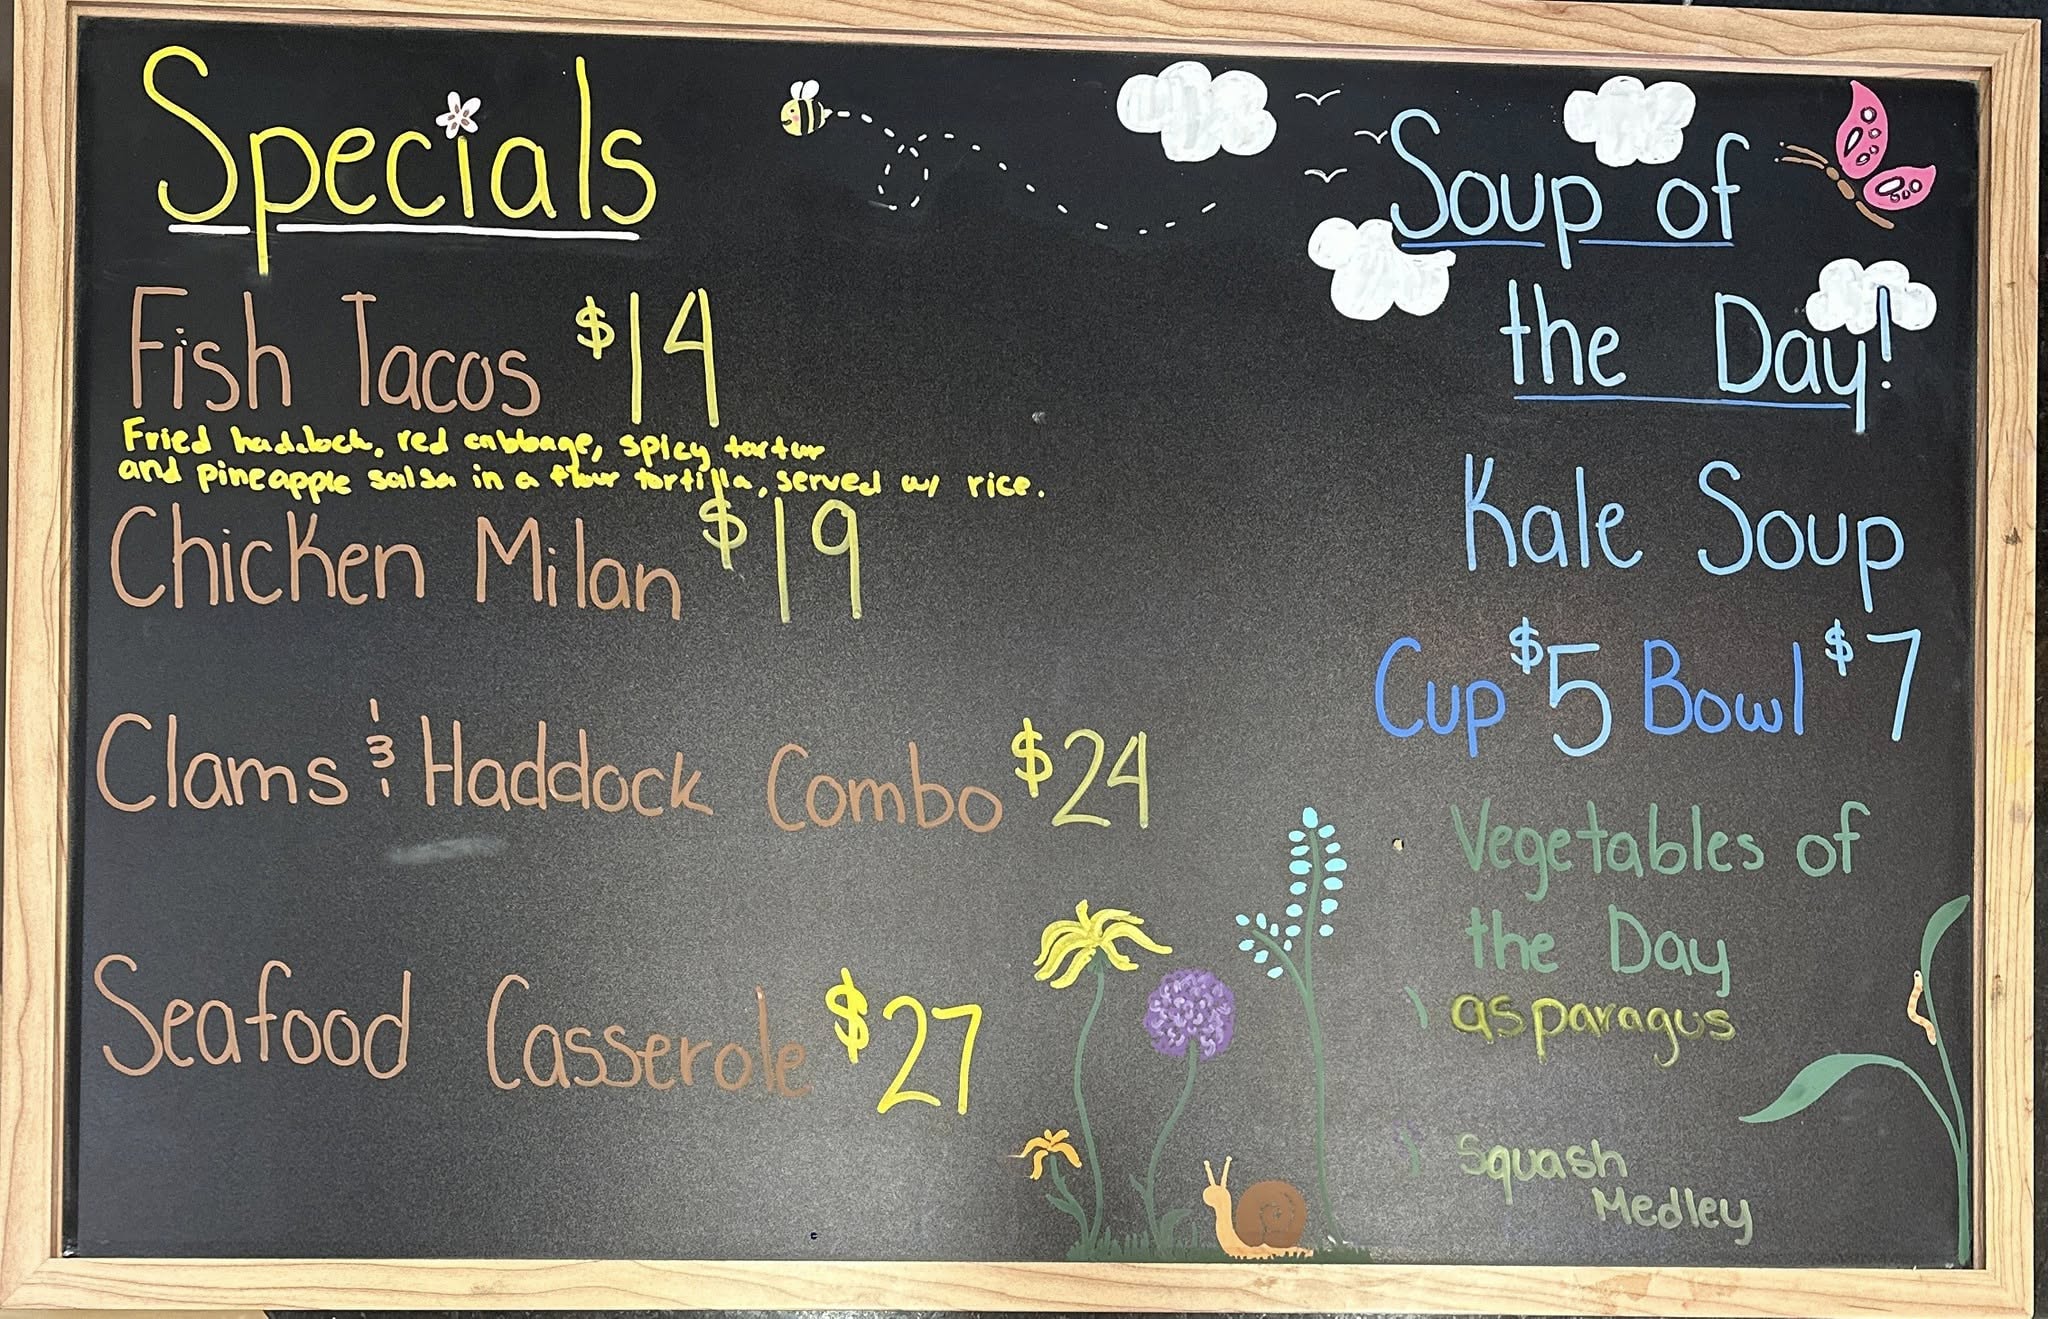 Specials
Fish Tacos $14
Fried haddock, red cabbage, spicy tartur
and pineapple salsa in a flour tortilla, served w/ rice.
Chicken Milan $19
Clams & Haddock Combo $24
Seafood Casserole $27
Soup of
the Day!
Kale Soup
Cup $5 Bowl $7
Vegetables of
the Day
asparagus
Squash
Medley